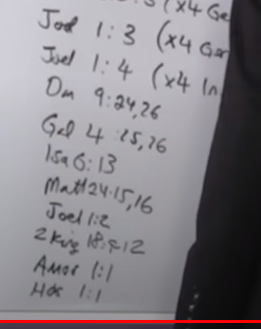 (x4 Ge
Joel 1:3 (x4 Gen
Joel 1:4 (x4 In
Dan 9:24,26
Gal 4:25,26
Isa 6:13
Matt 24:15,16
Joel 1:2
2 King 18:9-12
Amos 1:1
Hos 1:1